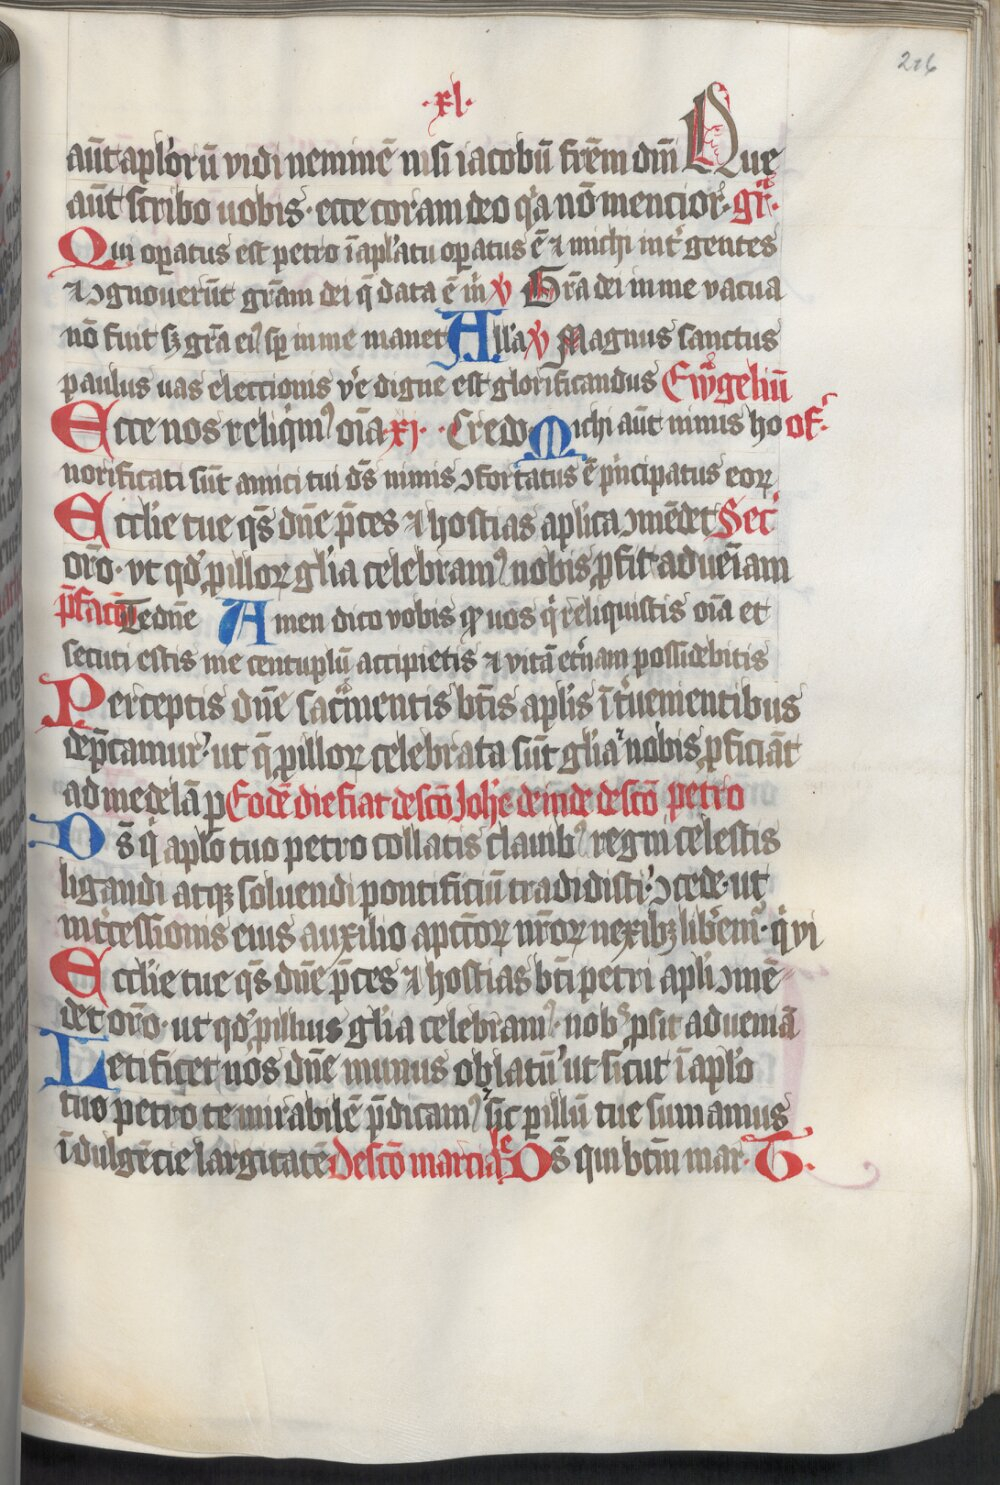 216
·xl·
aūt aplorū vidi neminē nisi iacobū frēm dnī Que
aūt scribo uobis· ecce coram deo qia nō mencior· gr̄·
Qui operatus est petro ī aplatu operatus ē ⁊ michi intʼ gentes
⁊ ꝯgnouerūt grām dei q̄ data ē m̄ ꝟ Grā dei in me vacua
nō fuit sꝫ grā eiꝰ sꝑ in me manet Alla ꝟ Magnus sanctus
paulus uas eleccionis ve digne est glorificandus Ewgeliū
Ecce nos reliqimꝰ oīa xj· Credo Michi aūt nimis ho of·
norificati sūt amici tui ds̄ nimis ꝯfortatus ē pincipatus eoꝝ
Ecclie tue qs̄ dn̄e p̄ces ⁊ hostias aplica ꝯmēdet Sec
oro· vt qd pilloꝝ glia celebramꝰ nobis ꝓsit ad ueīam
p̄faco Te dn̄e Amen dico vobis ꝙ uos qi reliquistis oīa et
secuti estis me centuplū accipietis ⁊ vitā etnam possidebitis
Perceptis dn̄e sacmentis bt̄is aplis īteruenientibus
dep̄camurꝰ· ut q̄ pilloꝝ celebrata sūt glia nobis ꝓficiāt
ad medelā ꝑ Eodē die fiat de scō Johe deinde de scō petro
Ds̄ qi aplo tuo petro collatis clauibꝰ regni celestis
ligandi atqꝫ soluendi pontificiū tradidisti· ꝯcede· ut
intercessionis eius auxilio apctoꝝ nr̄oꝝ nexibꝫ libemꝰ· qi vi
Ecclie tue qs̄ dn̄e p̄ces ⁊ hostias bt̄i petri apli ꝯmē
det oro· ut qd pillius glia celebramꝰ· nob ꝓsit ad ueniā
Letificet nos dn̄e munus oblatū ut sicut ī aplo
tuo petro te mirabilē p̄dicamꝰ sic pillū tue sumamus
īdulgēcie largitatē De scō marciale Ds̄ qui btm̄ mar· T·